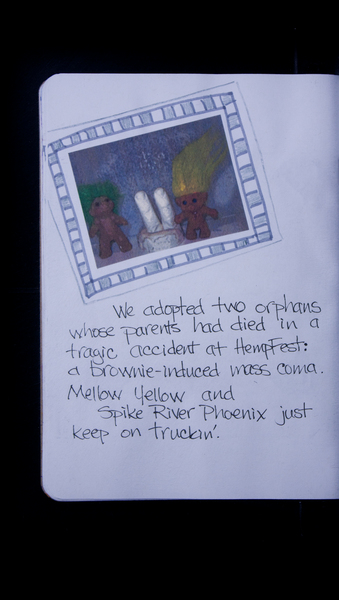 We adopted two orphans
whose parents had died in a
tragic accident at HempFest:
a brownie-induced mass coma.
Mellow Yellow and
Spike River Phoenix just
keep on truckin'.